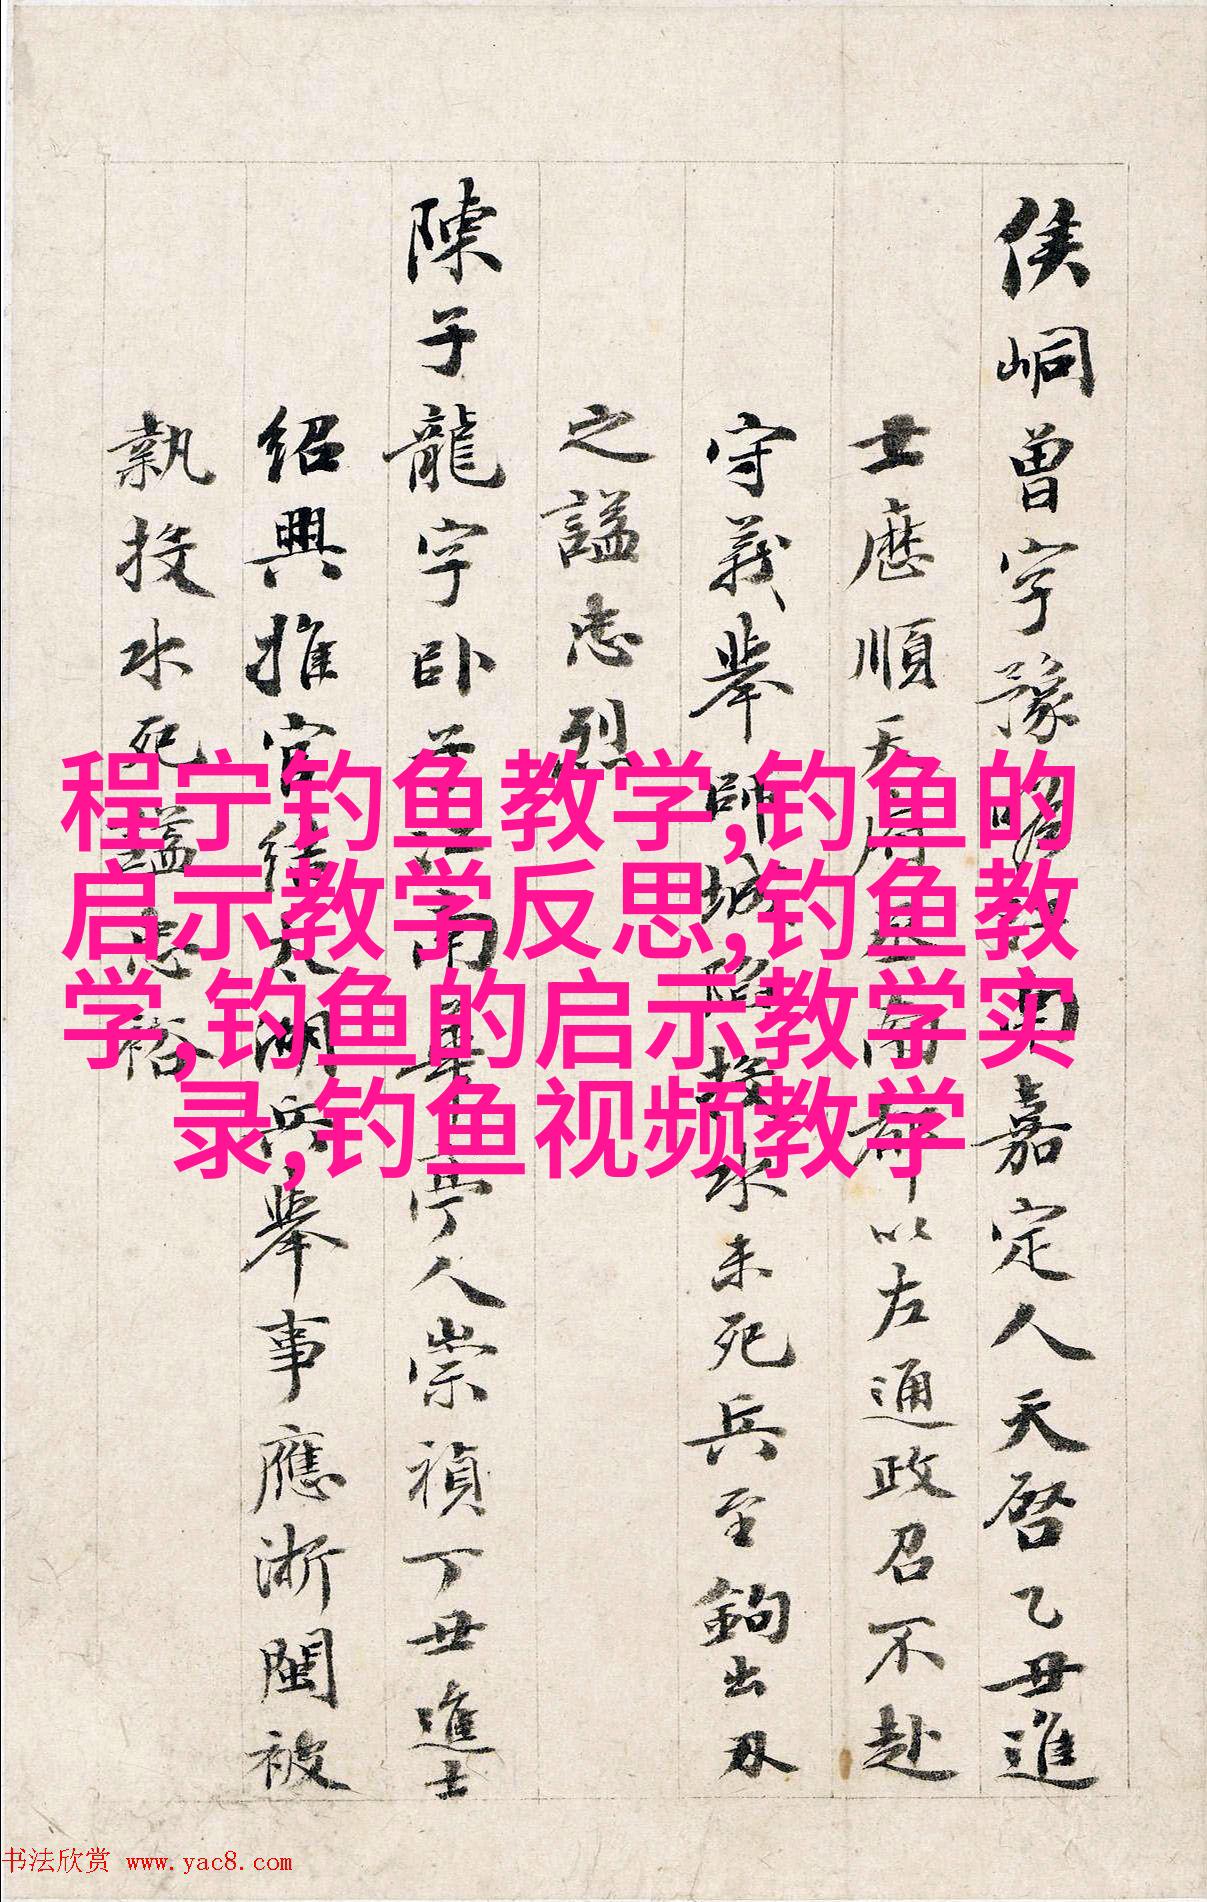 侯峒曾字豫瞻江南嘉定人天啓乙丑進
士歷順天府丞南都以左通政召不赴
守義舉師城陷投水未死兵至鉤出刃
之謚忠烈
陳子龍字卧子江南華亭人崇禎丁丑進士
紹興推官結太湖兵舉事應浙閩被
執投水死謚忠裕
程宁钓鱼教学,钓鱼的
启示教学反思,钓鱼教
学,钓鱼的启示教学实
录,钓鱼视频教学
书法欣赏 www.yac8.com